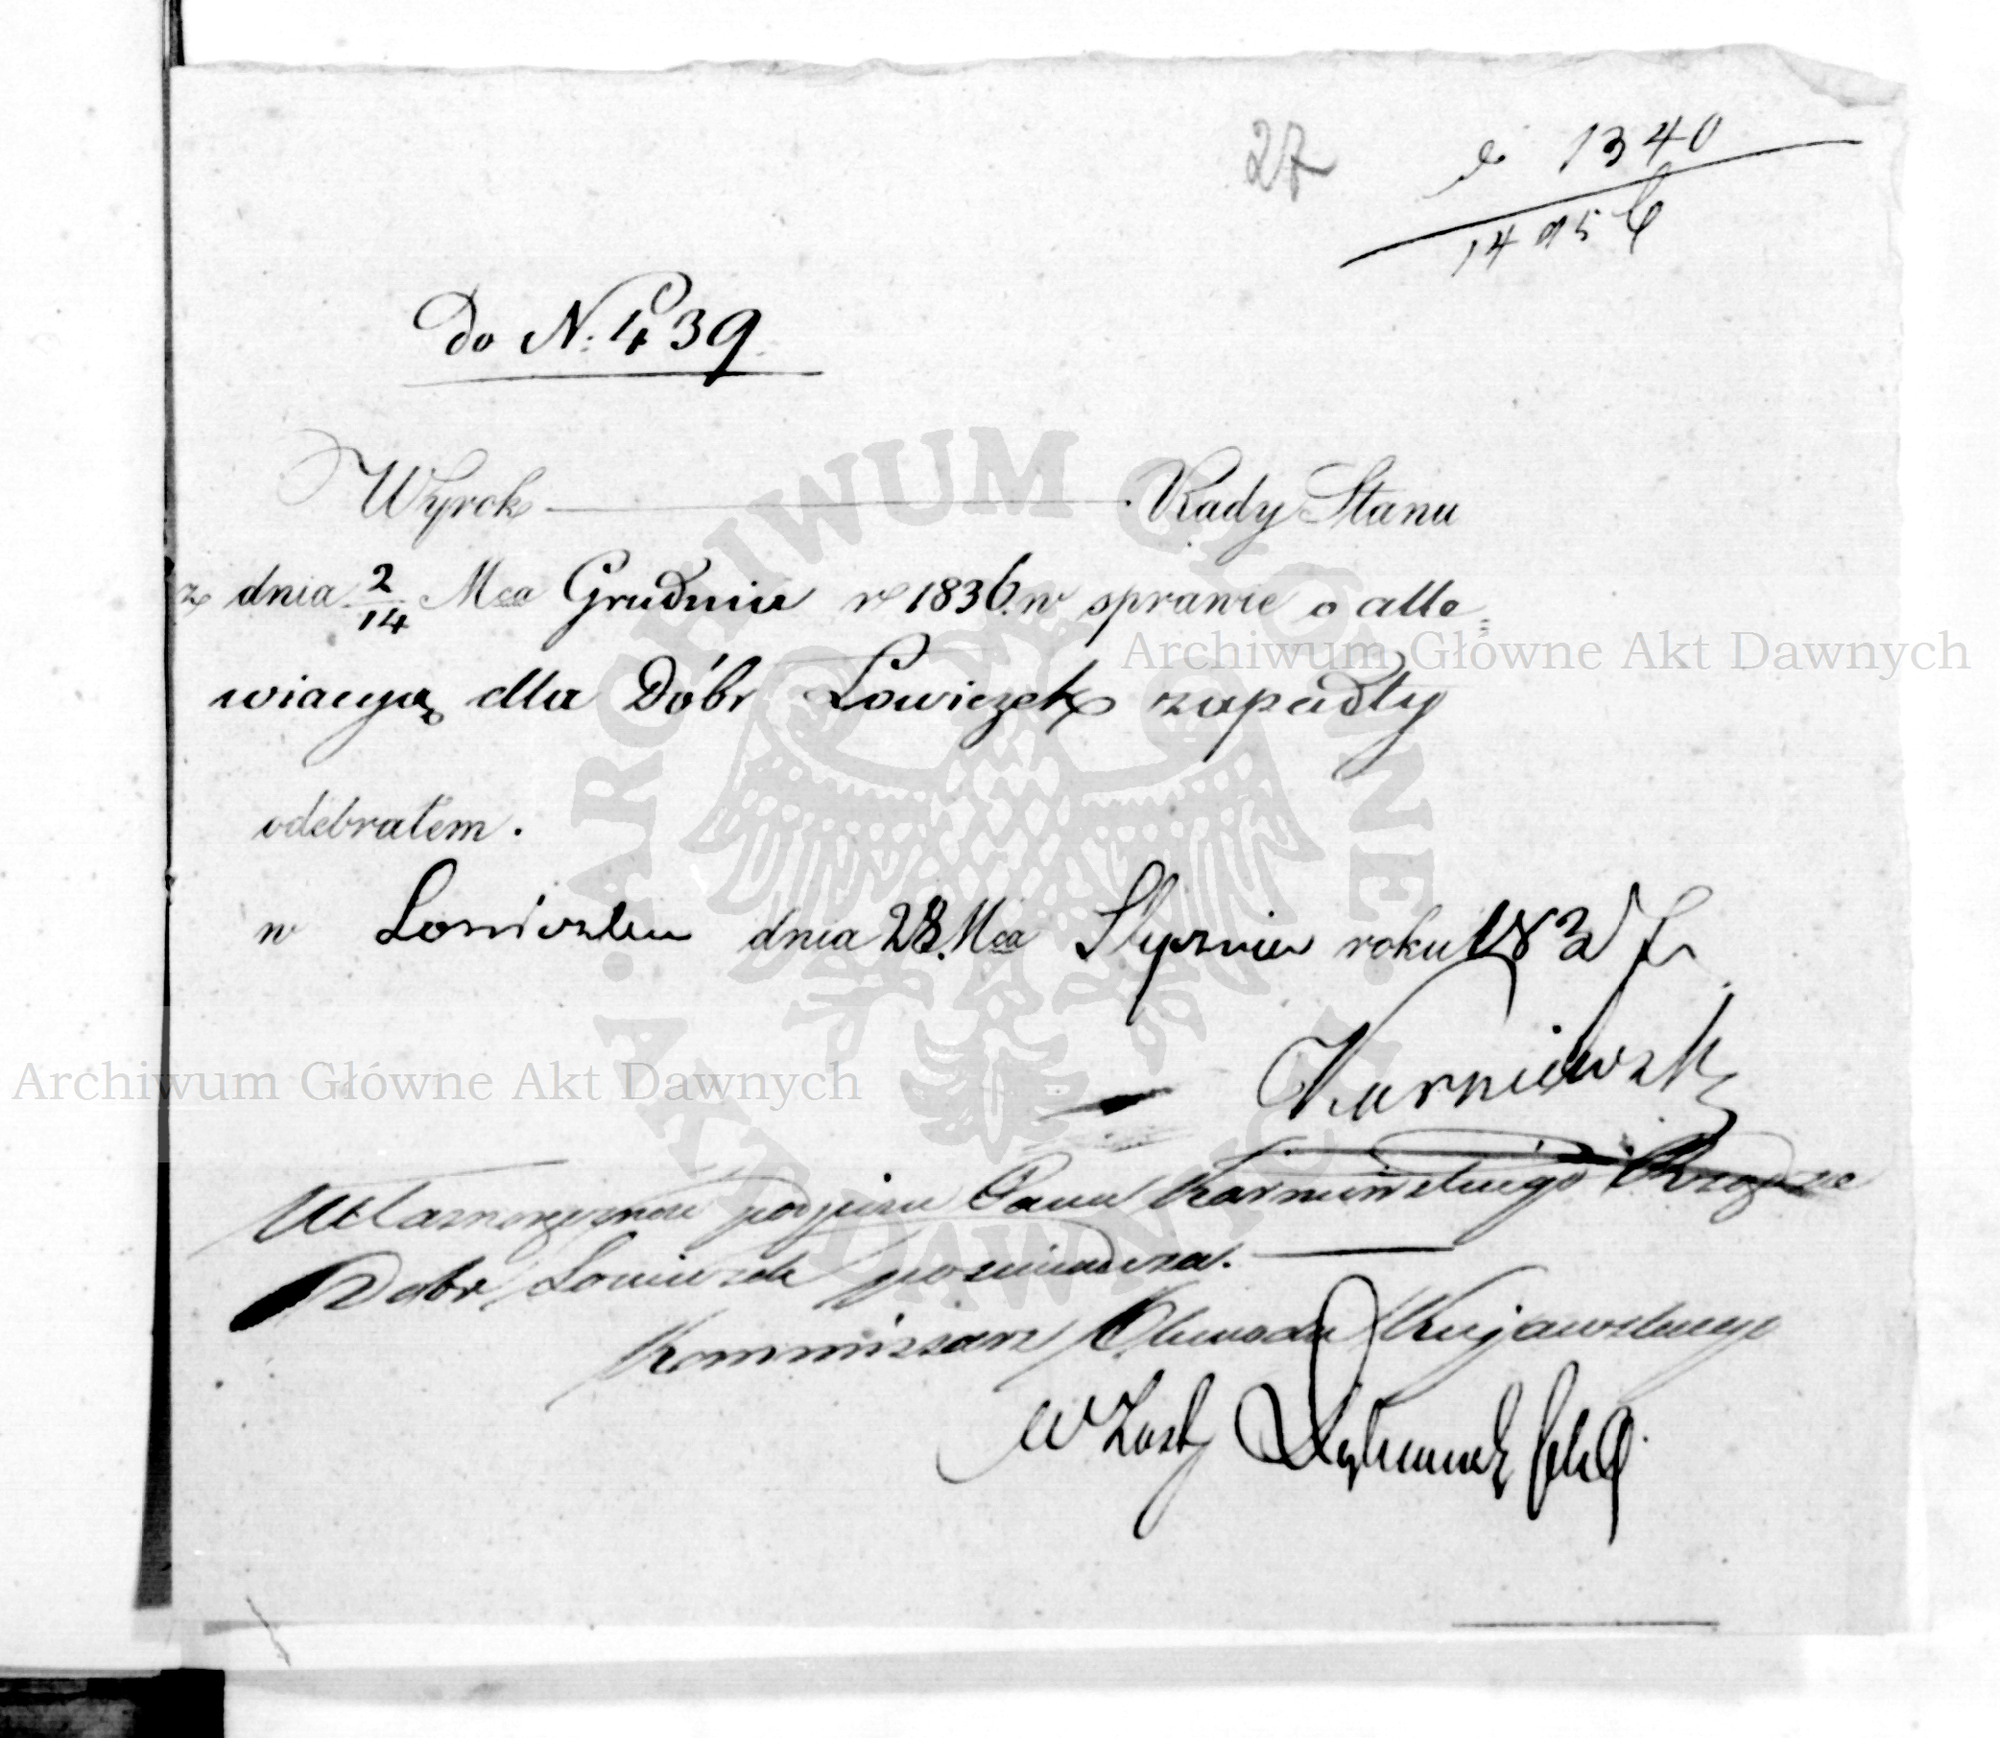 27
1340
14956
Do N. 1439
Wyrok Rady Stanu
z dnia 2/14 Mca Grudnia r 1836. w sprawie o alle=
wiacyją dla Dóbr Łowiczek zapadły
odebrałem.
w Łowiczku dnia 28. Mca Stycznia roku 1837
Karniewski
Własnoręczność podpisu Pana Karniewskiego
Dobr Łowiczek poświadcza.
Kommissarz Obwodu Kujawskiego
W Zast
Archiwum Główne Akt Dawnych
Archiwum Główne Akt Dawnych
ARCHIWUM GŁÓWNE AKT DAWNYCH